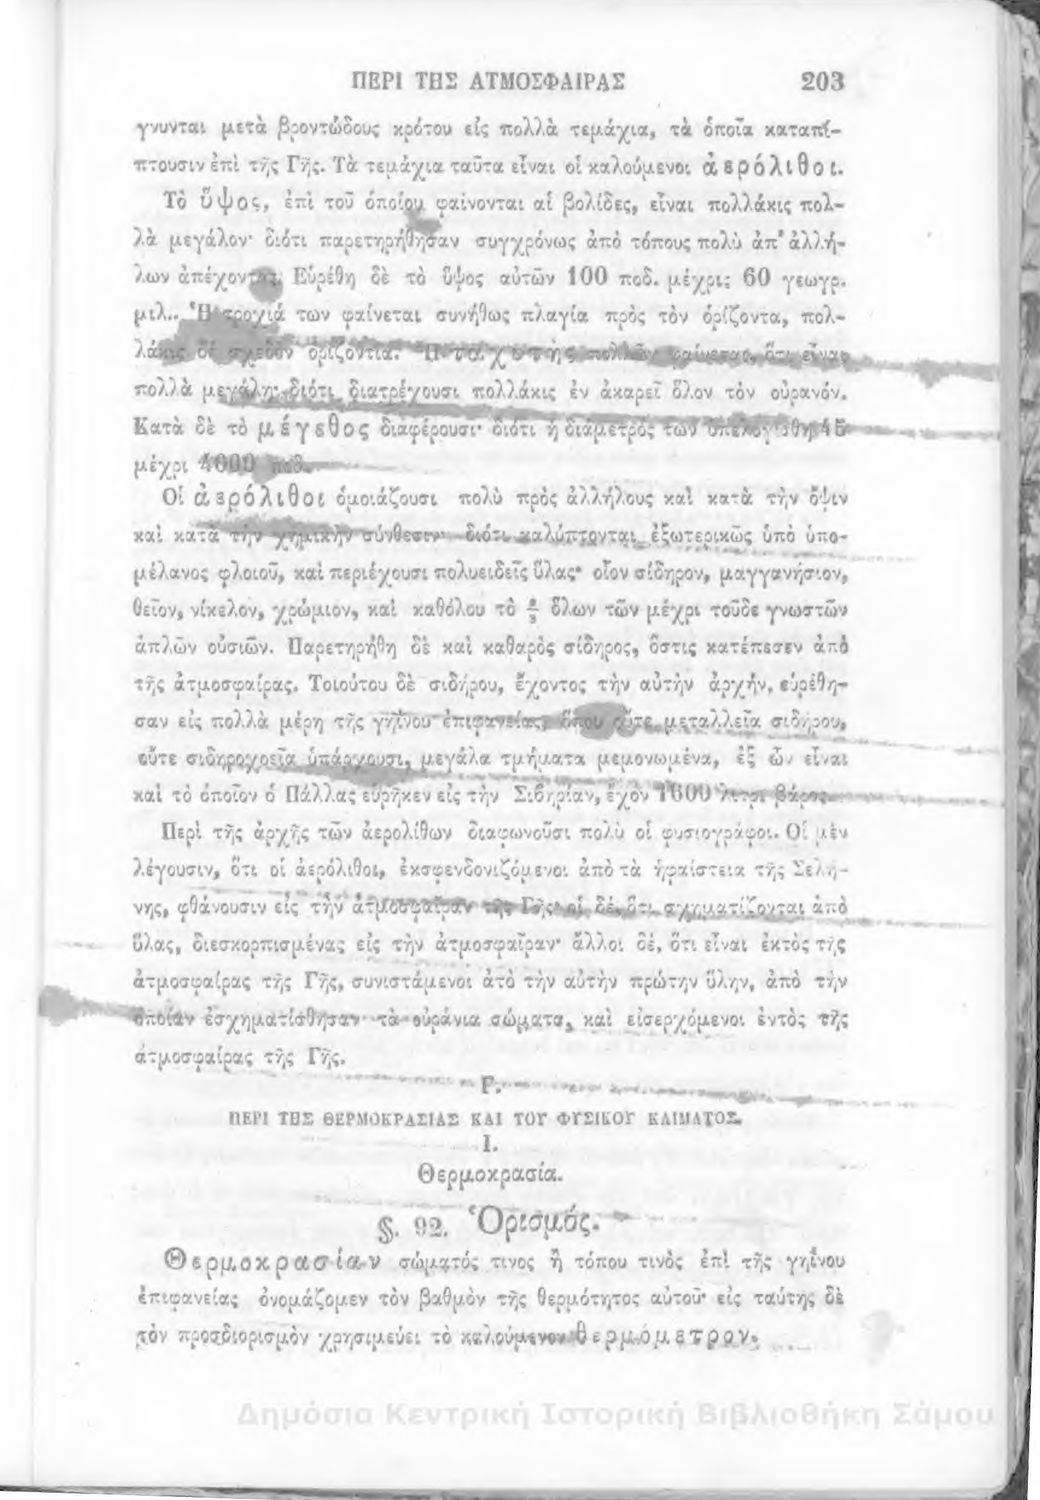 ΠΕΡΙ ΤΗΣ ΑΤΜΟΣΦΑΙΡΑΣ 203
γνυνται μετὰ βροντώδους κρότου εἰς πολλὰ τεμάχια, τὰ ὁποῖα καταπί-
πτουσιν ἐπὶ τῆς Γῆς. Τὰ τεμάχια ταῦτα εἶναι οἱ καλούμενοι ἀερόλιθοι.
Τὸ ὕψος, ἐπὶ τοῦ ὁποίου φαίνονται αἱ βολίδες, εἶναι πολλάκις πολ-
λὰ μεγάλον· διότι παρετηρήθησαν συγχρόνως ἀπὸ τόπους πολὺ ἀπ' ἀλλή-
λων ἀπέχοντας. Εὑρέθη δὲ τὸ ὕψος αὐτῶν 100 ποδ. μέχρις 60 γεωγρ.
μιλ.. Ἡ τροχιά των φαίνεται συνήθως πλαγία πρὸς τὸν ὁρίζοντα, πολ-
λάκις δὲ σχεδὸν ὁριζοντία. Ἡ ταχυτὴς πολλῶν φαίνεται, ὅτι εἶναι
πολλὰ μεγάλη· διότι διατρέχουσι πολλάκις ἐν ἀκαρεῖ ὅλον τὸν οὐρανόν.
Κατὰ δὲ τὸ μέγεθος διαφέρουσι· διότι ἡ διάμετρός των ὑπελογίσθη 45
μέχρι 4000 ποδ.
Οἱ ἀερόλιθοι ὁμοιάζουσι πολὺ πρὸς ἀλλήλους καὶ κατὰ τὴν ὄψιν
καὶ κατὰ τὴν χημικὴν σύνθεσιν· διότι καλύπτονται ἐξωτερικῶς ὑπὸ ὑπο-
μέλανος φλοιοῦ, καὶ περιέχουσι πολυειδεῖς ὕλας· οἷον σίδηρον, μαγγανήσιον,
θεῖον, νίκελον, χρώμιον, καὶ καθόλου τὸ ὅλων τῶν μέχρι τοῦδε γνωστῶν
ἁπλῶν οὐσιῶν. Παρετηρήθη δὲ καὶ καθαρὸς σίδηρος, ὅστις κατέπεσεν ἀπὸ
τῆς ἀτμοσφαίρας. Τοιούτου δὲ σιδήρου, ἔχοντος τὴν αὐτὴν ἀρχήν, εὑρέθη-
σαν εἰς πολλὰ μέρη τῆς γηΐνου ἐπιφανείας, ὅπου οὔτε μεταλλεῖα σιδήρου,
οὔτε σιδηροχοεῖα ὑπάρχουσι, μεγάλα τμήματα μεμονωμένα, ἐξ ὧν εἶναι
καὶ τὸ ὁποῖον ὁ Πάλλας εὕρηκεν εἰς τὴν Σιβηρίαν, ἔχον 1600 λιτρ. βάρος.
Περὶ τῆς ἀρχῆς τῶν ἀερολίθων διαφωνοῦσι πολὺ οἱ φυσιογράφοι. Οἱ μὲν
λέγουσιν, ὅτι οἱ ἀερόλιθοι, ἐκσφενδονιζόμενοι ἀπὸ τὰ ἡφαίστεια τῆς Σελή-
νης, φθάνουσιν εἰς τὴν ἀτμοσφαῖραν τῆς Γῆς· οἱ δὲ, ὅτι σχηματίζονται ἀπὸ
ὕλας, διεσκορπισμένας εἰς τὴν ἀτμοσφαῖραν· ἄλλοι δέ, ὅτι εἶναι ἐκτὸς τῆς
ἀτμοσφαίρας τῆς Γῆς, συνιστάμενοι ἀπὸ τὴν αὐτὴν πρώτην ὕλην, ἀπὸ τὴν
ὁποίαν ἐσχηματίσθησαν τὰ οὐράνια σώματα, καὶ εἰσερχόμενοι ἐντὸς τῆς
ἀτμοσφαίρας τῆς Γῆς.
Γ.
ΠΕΡΙ ΤΗΣ ΘΕΡΜΟΚΡΑΣΙΑΣ ΚΑΙ ΤΟΥ ΦΥΣΙΚΟΥ ΚΛΙΜΑΤΟΣ.
Ι.
Θερμοκρασία.
§. 92. Ὁρισμός.
Θερμοκρασίαν σώματός τινος ἢ τόπου τινὸς ἐπὶ τῆς γηΐνου
ἐπιφανείας ὀνομάζομεν τὸν βαθμὸν τῆς θερμότητος αὐτοῦ· εἰς ταύτης δὲ
τὸν προσδιορισμὸν χρησιμεύει τὸ καλούμενον θερμόμετρον.
Δημόσια Κεντρική Ιστορική Βιβλιοθήκη Σάμου